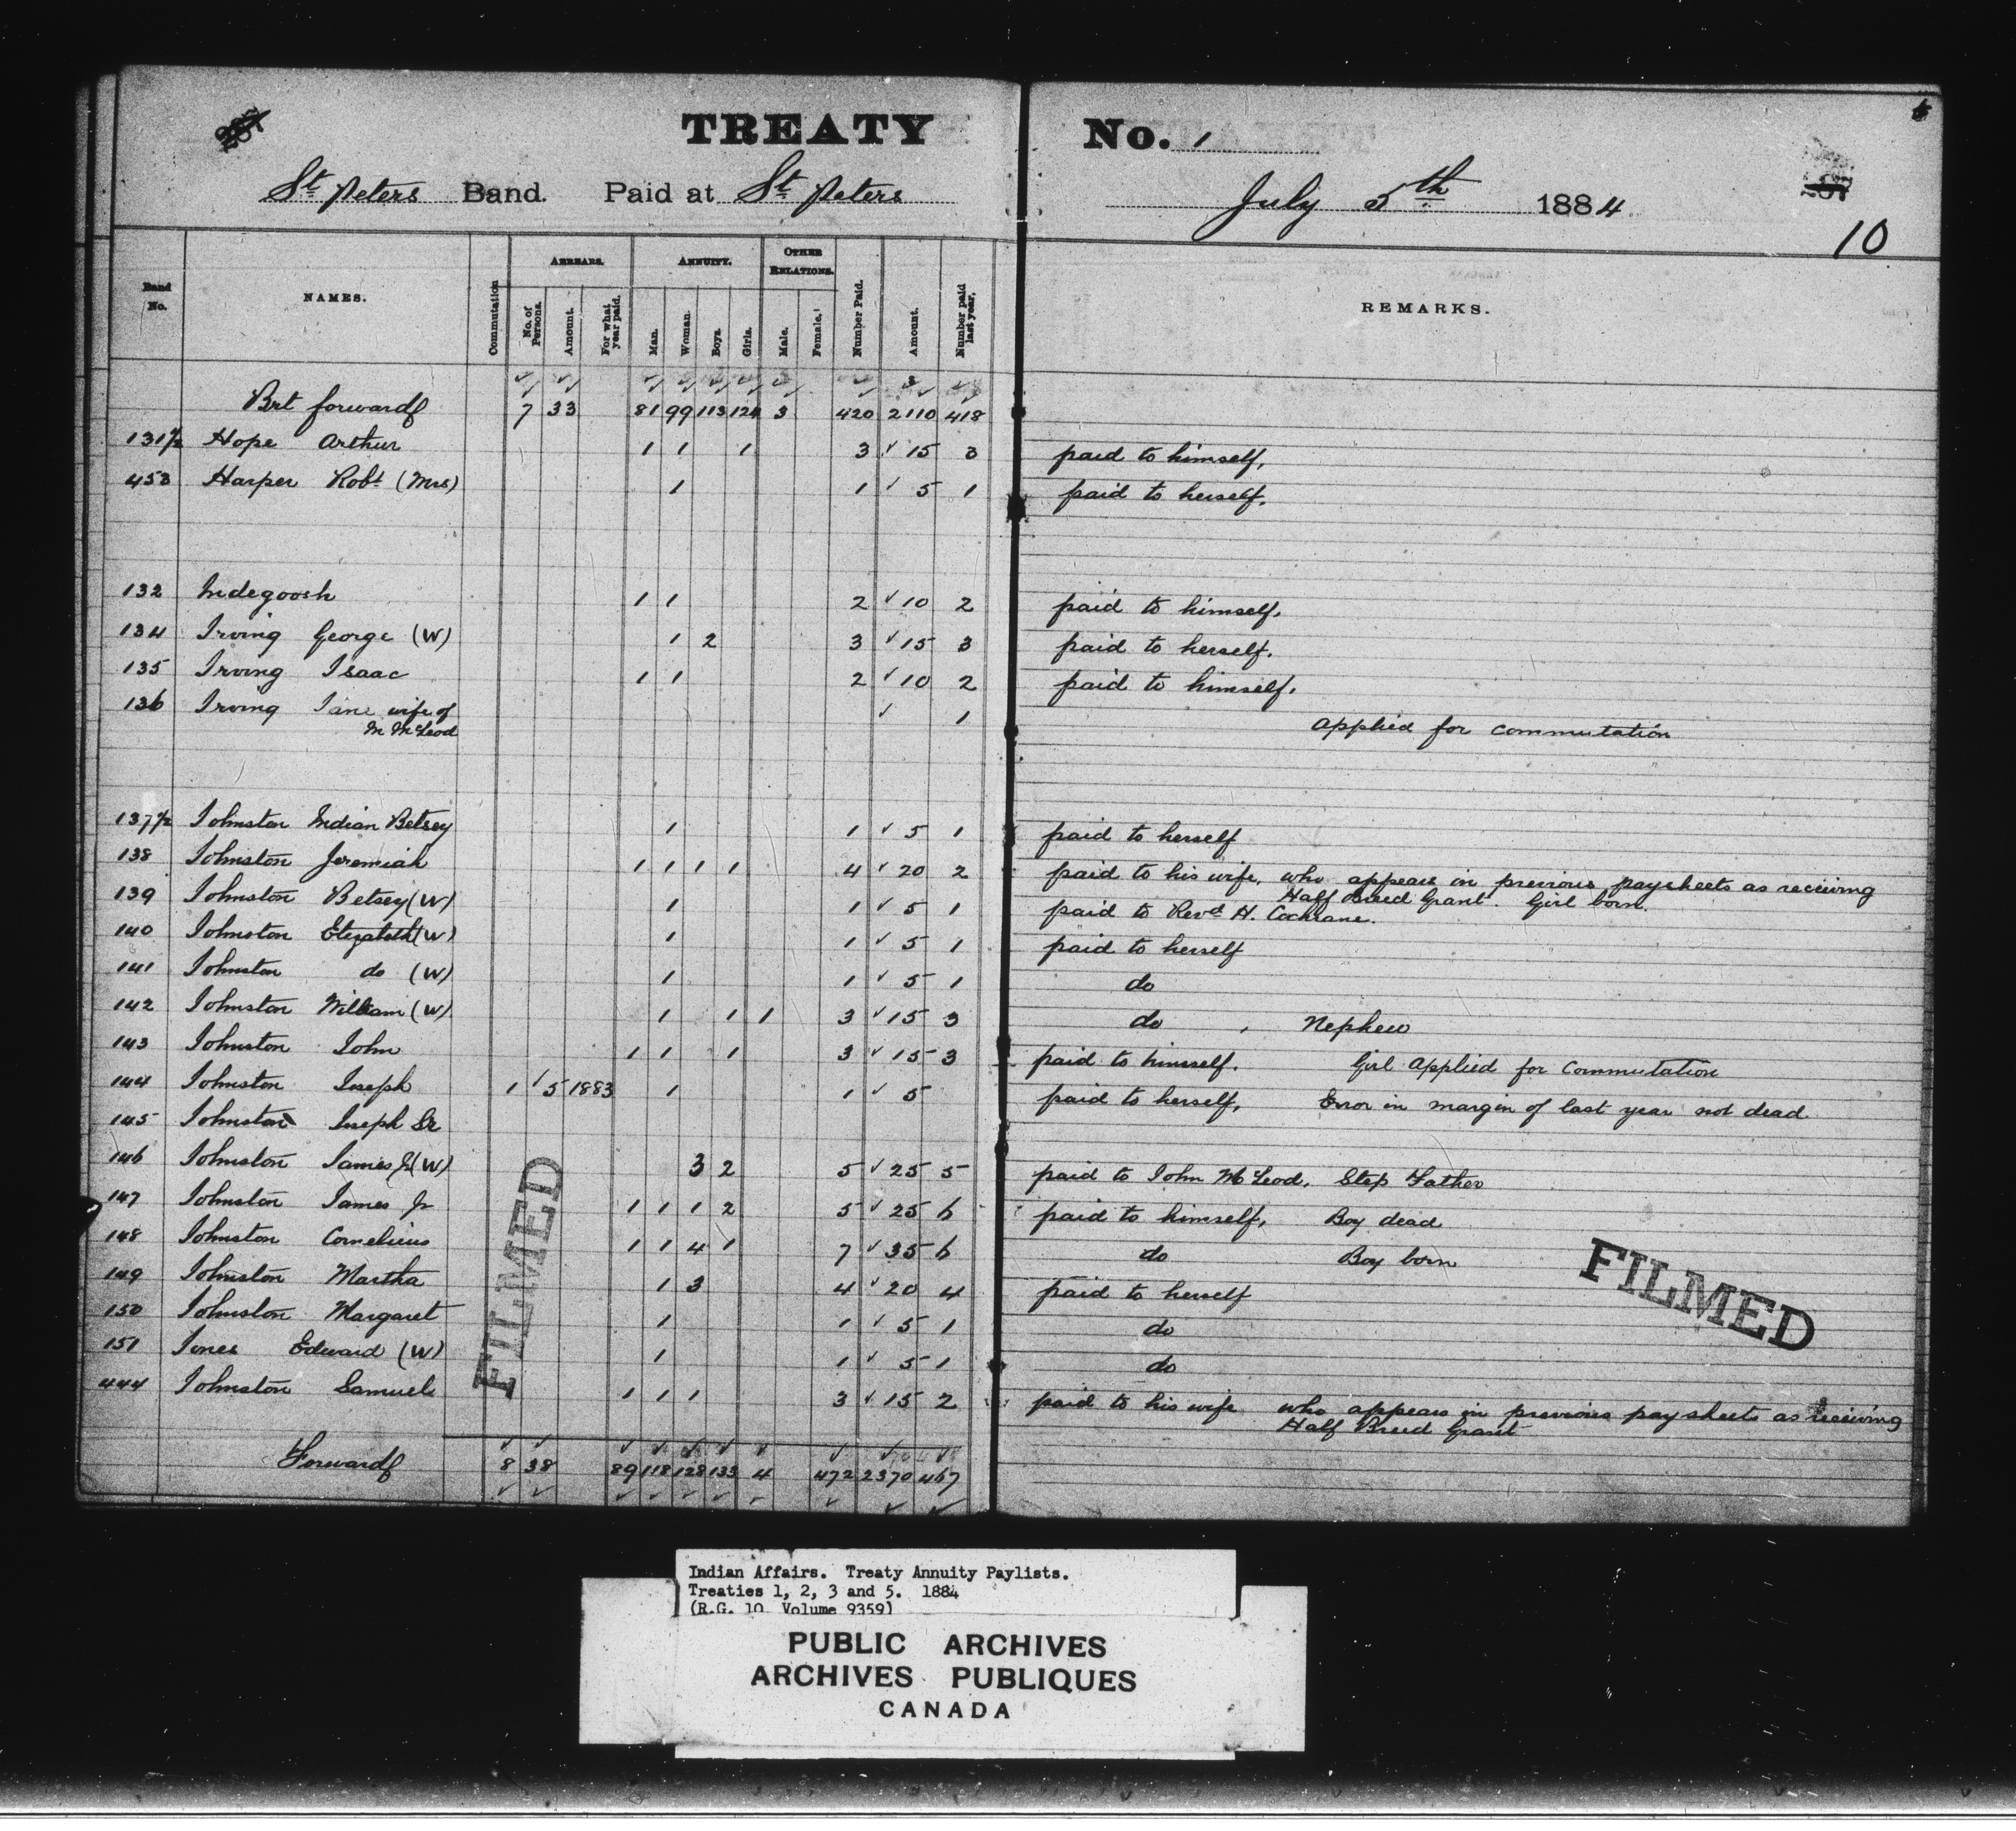 TREATY No. 1
St. Peters Band. Paid at St. Peters July 5th 1884
10
Band No. NAMES. Commutation ARREARS. No. of Persons. Amount. For what year paid. ANNUITY. Man. Woman. Boys. Girls. OTHER RELATIONS. Male. Female. Number Paid. Amount. Number paid last year. REMARKS.
Brt forward 7 33 81 99 113 124 3 420 2110 418
131½ Hope Arthur 1 1 1 3 ✓ 15 3 paid to himself.
453 Harper Robt (Mrs) 1 1 ✓ 5 1 paid to herself.
132 Indegoosh 1 1 2 ✓ 10 2 paid to himself.
134 Irving George (W) 1 2 3 ✓ 15 3 paid to herself.
135 Irving Isaac 1 1 2 ✓ 10 2 paid to himself.
136 Irving Jane wife of ✓ 1
M McLeod Applied for commutation
137½ Johnston Indian Betsey 1 1 ✓ 5 1 paid to herself
138 Johnston Jeremiah 1 1 1 1 4 ✓ 20 2 paid to his wife, who appears in previous paysheets as receiving
Half Breed Grant. Girl born.
139 Johnston Betsey (W) 1 1 ✓ 5 1 paid to Revd H. Cochrane.
140 Johnston Elizabeth (W) 1 1 ✓ 5 1 paid to herself
141 Johnston do (W) 1 1 ✓ 5 1 do
142 Johnston William (W) 1 1 1 3 ✓ 15 3 do , Nephew
143 Johnston John 1 1 1 3 ✓ 15 3 paid to himself. Girl Applied for Commutation
144 Johnston Joseph 1 ✓ 5 1883 1 1 ✓ 5 paid to herself, Error in margin of last year not dead
145 Johnston Joseph Sr
146 Johnston James (W) 3 2 5 ✓ 25 5 paid to John McLeod, Step Father
147 Johnston James Jr 1 1 1 2 5 ✓ 25 6 paid to himself, Boy dead
148 Johnston Cornelius 1 1 4 1 7 ✓ 35 6 do Boy born
149 Johnston Martha 1 3 4 ✓ 20 4 paid to herself
150 Johnston Margaret 1 1 ✓ 5 1 do
151 Jones Edward (W) 1 1 ✓ 5 1 do
444 Johnston Samuel 1 1 1 3 ✓ 15 2 paid to his wife who appears in previous paysheets as receiving
Half Breed Grant
Forward 8 38 89 118 128 133 4 472 2370 467
FILMED
FILMED
Indian Affairs. Treaty Annuity Paylists.
Treaties 1, 2, 3 and 5. 1884
(R.G. 10 Volume 9359)
PUBLIC ARCHIVES
ARCHIVES PUBLIQUES
CANADA